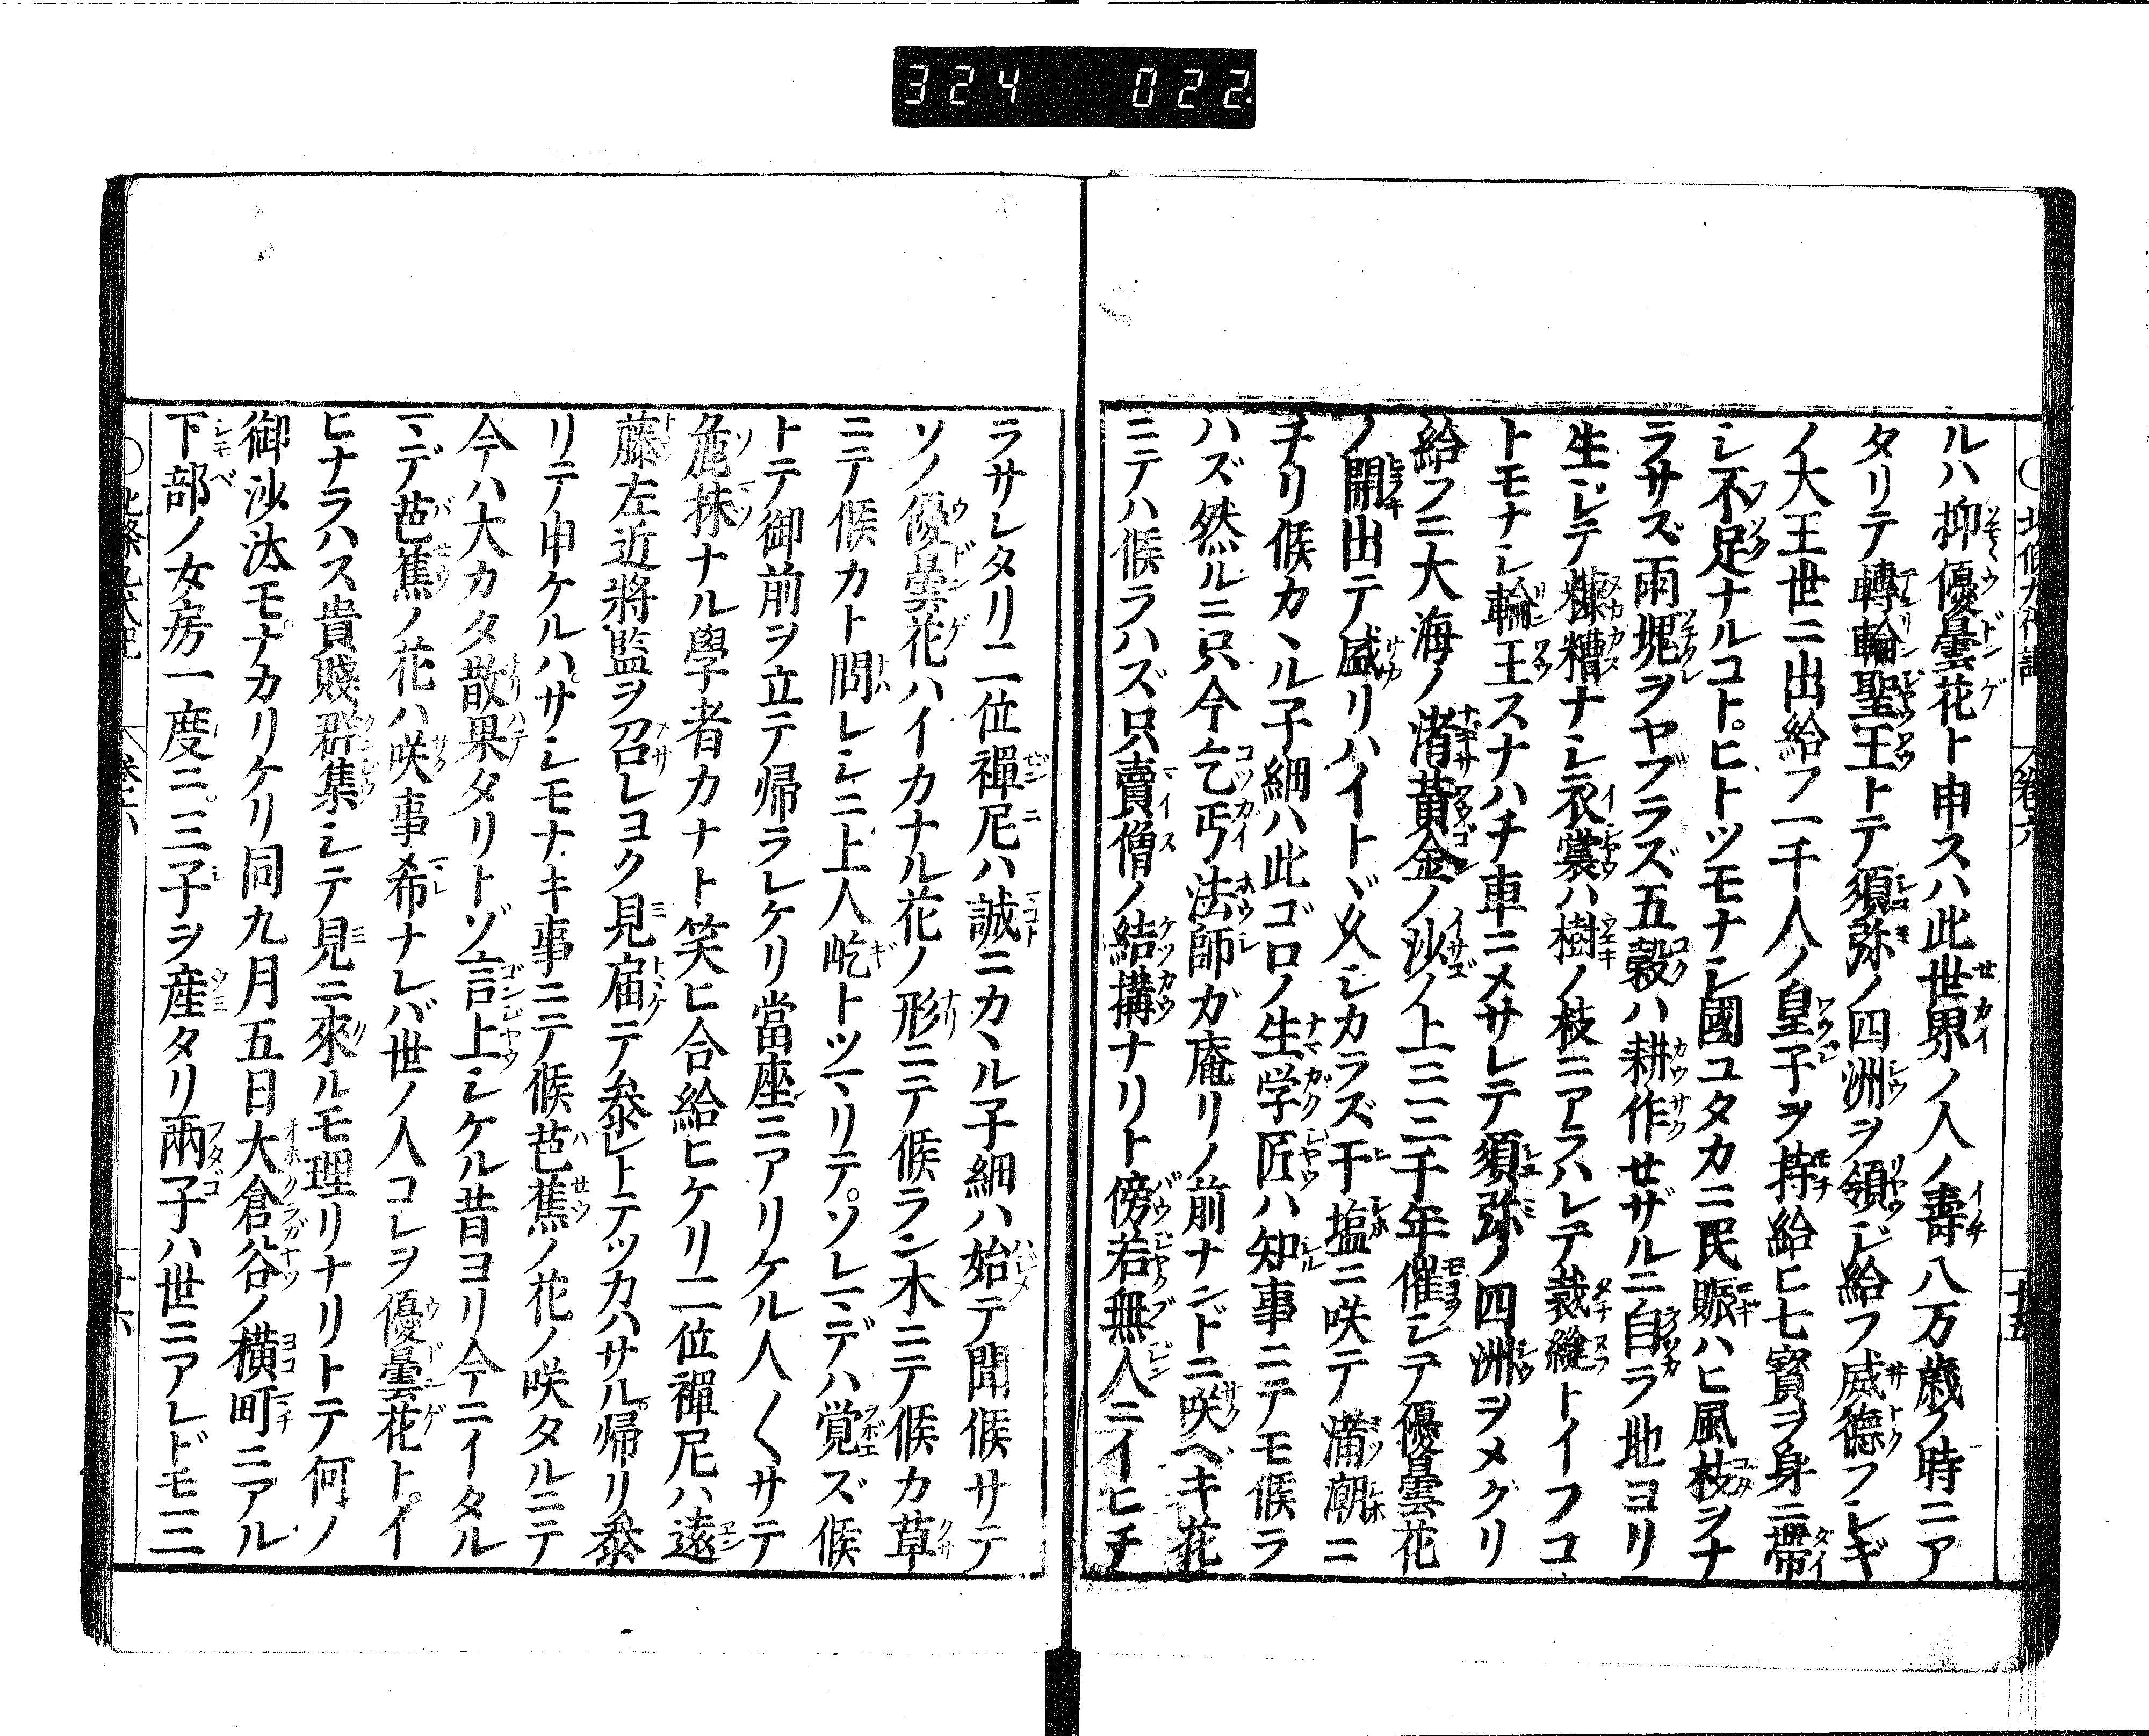 324 022
○北條九代記 卷六 十五
ルハ抑優曇花ト申スハ此世界ノ人ノ壽八万歳ノ時ニア
タリテ轉輪聖王トテ須弥ノ四洲ヲ領ジ給フ威德フシギ
ノ大王世ニ出給フ一千人ノ皇子ヲ持給ヒ七寳ヲ身ニ帶
シ不足ナルコトヒトツモナシ國ユタカニ民賑ハヒ風枝ヲナ
ラサズ雨塊ヲヤブラズ五穀ハ耕作セザルニ自ラ地ヨリ
生ジテ糠糟ナシ衣裳ハ樹ノ枝ニアラハレテ裁縫トイフコ
トモナシ輪王スナハチ車ニメサレテ須弥ノ四洲ヲメグリ
給フニ大海ノ渚黃金ノ沙ノ上ニ三千年催シテ優曇花
ノ開出テ盛リハイトヾ久シカラズ干塩ニ咲テ滿潮ニ
チリ候カヽル子細ハ此ゴロノ生学匠ハ知事ニテモ候ラ
ハズ然ルニ只今乞丐法師ガ庵リノ前ナンドニ咲ベキ花
ニテハ候ラハズ只賣僧ノ結搆ナリト傍若無人ニイヒチ
ラサレタリ二位禪尼ハ誠ニカヽル子細ハ始テ聞候サテ
ソノ優曇花ハイカナル花ノ形ニテ候ラン木ニテ候カ草
ニテ候カト問レシニ上人屹トツマリテソレマデハ覚ズ候
トテ御前ヲ立テ帰ラレケリ當座ニアリケル人〱サテ
麁抹ナル學者カナト笑ヒ合給ヒケリ二位禪尼ハ遠
藤左近將監ヲ召レヨク見届テ參レトテツカハサル帰リ參
リテ申ケルハサシモナキ事ニテ候芭蕉ノ花ノ咲タルニテ
今ハ大カタ散果タリトゾ言上シケル昔ヨリ今ニイタル
マデ芭蕉ノ花ハ咲事希ナレバ世ノ人コレヲ優曇花トイ
ヒナラハス貴賤群集シテ見ニ來ルモ理リナリトテ何ノ
御沙汰モナカリケリ同九月五日大倉谷ノ横町ニアル
下部ノ女房一度ニ三子ヲ産タリ兩子ハ世ニアレドモ三
○北條九代記 卷六 十六